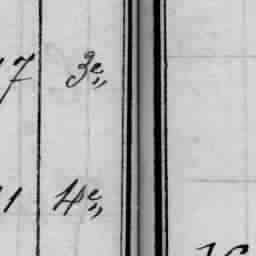 7 3e„
1 4e„